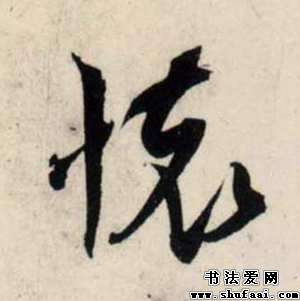 懐
书法爱网
www.shufaai.com